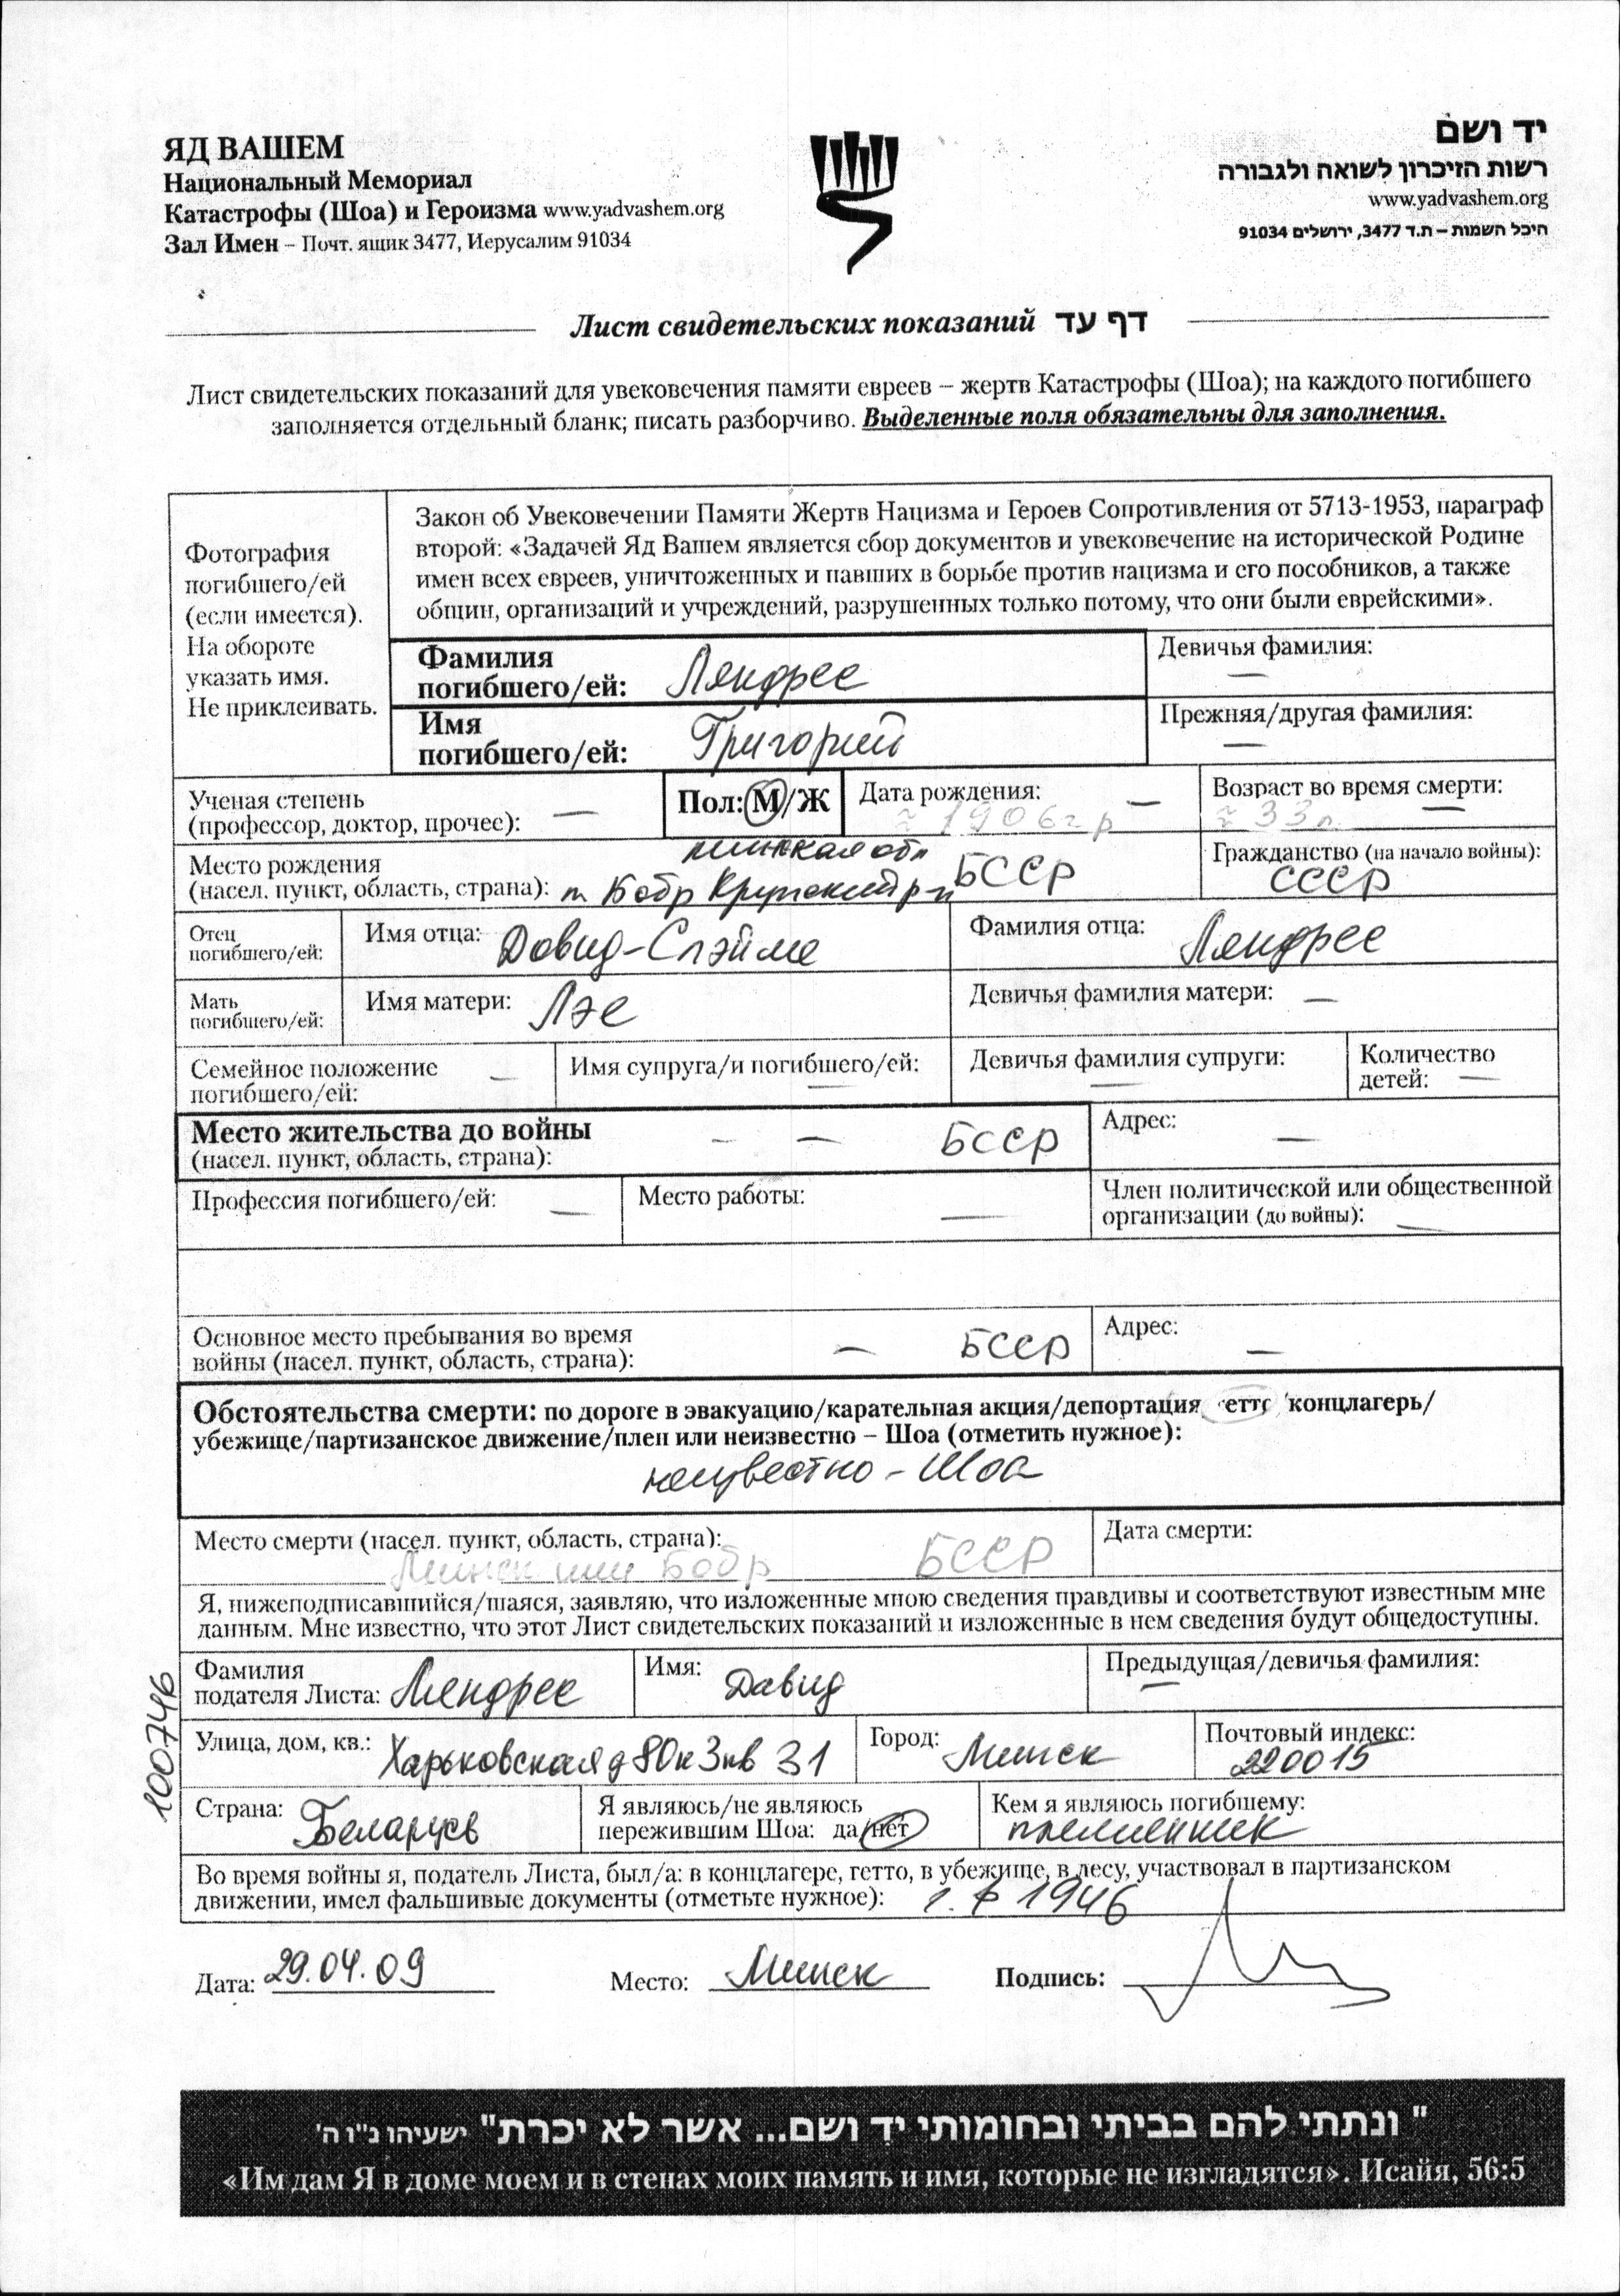 ЯД ВАШЕМ
Национальный Мемориал
Катастрофы (Шоа) и Героизма www.yadvashem.org
Зал Имен – Почт. ящик 3477, Иерусалим 91034
יד ושם
רשות הזיכרון לשואה ולגבורה
www.yadvashem.org
היכל השמות – ת.ד 3477, ירושלים 91034
Лист свидетельских показаний דף עד
Лист свидетельских показаний для увековечения памяти евреев – жертв Катастрофы (Шоа); на каждого погибшего
заполняется отдельный бланк; писать разборчиво. Выделенные поля обязательны для заполнения.
Фотография
погибшего/ей
(если имеется).
На обороте
указать имя.
Не приклеивать.
Закон об Увековечении Памяти Жертв Нацизма и Героев Сопротивления от 5713-1953, параграф
второй: «Задачей Яд Вашем является сбор документов и увековечение на исторической Родине
имен всех евреев, уничтоженных и павших в борьбе против нацизма и его пособников, а также
общин, организаций и учреждений, разрушенных только потому, что они были еврейскими».
Фамилия
погибшего/ей: Ляндрес
Девичья фамилия: —
Имя
погибшего/ей: Григорий
Прежняя/другая фамилия: —
Ученая степень
(профессор, доктор, прочее): —
Пол: М/Ж
Дата рождения: —
≈ 1906 г р
Возраст во время смерти: —
≈ 33 л
Место рождения минская обл
(насел. пункт, область, страна): м. Бобр Крупский р-н БССР
Гражданство (на начало войны):
СССР
Отец
погибшего/ей:
Имя отца: Довид-Слэйме
Фамилия отца: Ляндрес
Мать
погибшего/ей:
Имя матери: Лэе
Девичья фамилия матери: —
Семейное положение
погибшего/ей: —
Имя супруга/и погибшего/ей: —
Девичья фамилия супруги: —
Количество
детей: —
Место жительства до войны
(насел. пункт, область, страна): – — БССР
Адрес: —
Профессия погибшего/ей: —
Место работы: —
Член политической или общественной
организации (до войны): —
Основное место пребывания во время
войны (насел. пункт, область, страна): — БССР
Адрес: —
Обстоятельства смерти: по дороге в эвакуацию/карательная акция/депортация гетто концлагерь/
убежище/партизанское движение/плен или неизвестно – Шоа (отметить нужное):
неизвестно - Шоа
Место смерти (насел. пункт, область, страна):
Минск или Бобр БССР
Дата смерти:
Я, нижеподписавшийся/шаяся, заявляю, что изложенные мною сведения правдивы и соответствуют известным мне
данным. Мне известно, что этот Лист свидетельских показаний и изложенные в нем сведения будут общедоступны.
Фамилия
подателя Листа: Ляндрес
Имя: Давид
Предыдущая/девичья фамилия:
—
Улица, дом, кв.: Харьковская д 80 к 3 кв 31
Город: Минск
Почтовый индекс:
220015
Страна: Беларусь
Я являюсь/не являюсь
пережившим Шоа: да/нет
Кем я являюсь погибшему:
племянник
Во время войны я, податель Листа, был/а: в концлагере, гетто, в убежище, в лесу, участвовал в партизанском
движении, имел фальшивые документы (отметьте нужное): г. р 1946
100746
Дата: 29.04.09
Место: Минск
Подпись:
" ונתתי להם בביתי ובחומותי יד ושם... אשר לא יכרת" ישעיהו נ"ו ה'
«Им дам Я в доме моем и в стенах моих память и имя, которые не изгладятся». Исайя, 56:5